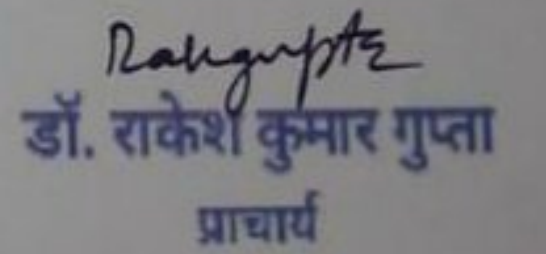 Rakgupta
डॉ. राकेश कुमार गुप्ता
प्राचार्य